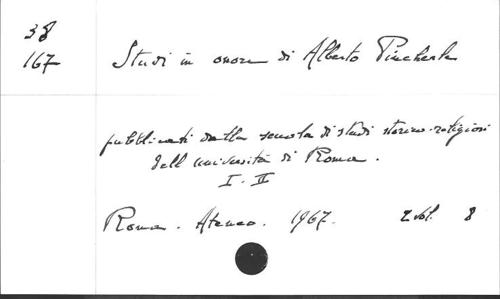 38
167
Studi in onore di Alberto Pincherle
pubblicati dalla scuola di studi storico-religiosi
dell università di Roma.
I. II
Roma. Ateneo. 1967. 2 vol. 8